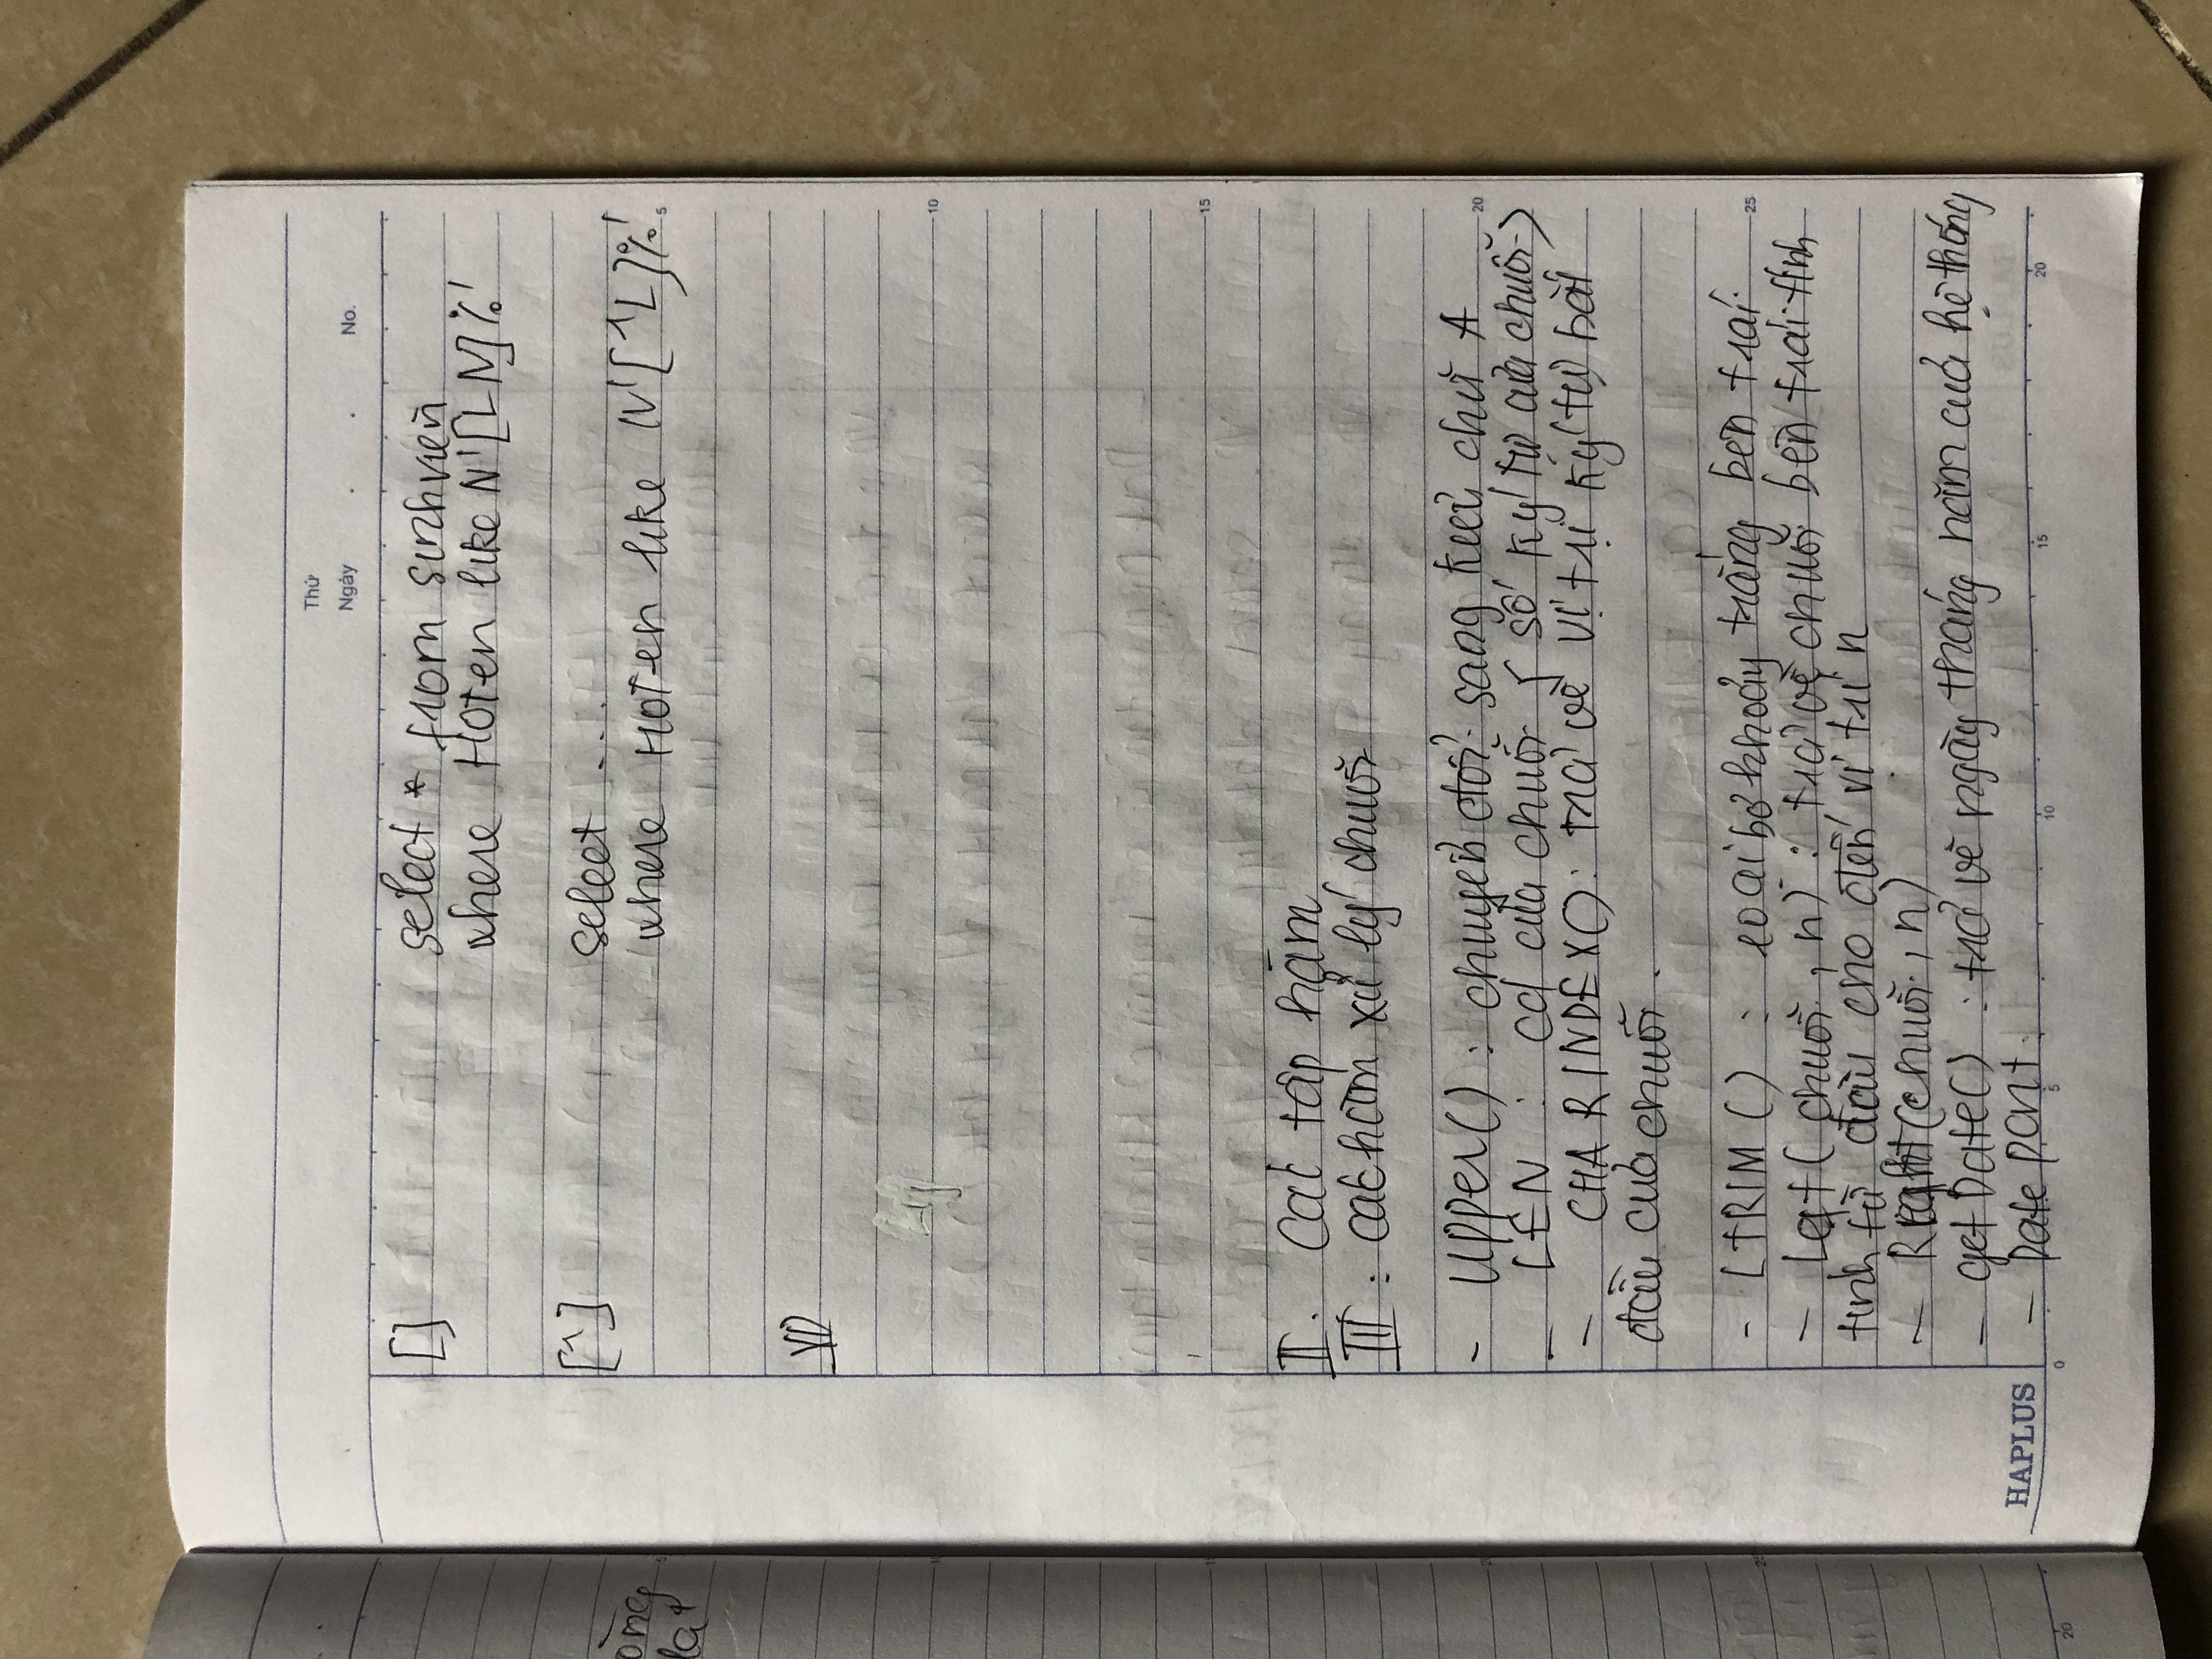 Thứ
Ngày . . No.
[] select * from sinhviên
where HOTen like N'[LN]%'
òng
lat
[^] select ...
where HOTen like N'[^L]%'
5
VD
10
15
II. Các tập hàm
III: các hàm xử lý chuỗi
- Upper() : chuyển đổi sang kiểu chữ A
20
- LEN : cd của chuỗi ( số ký tự của chuỗi )
- CHARINDEX() : trả về vị trí ký tự bắt
đầu của chuỗi.
- LTRIM () : loại bỏ khoảng trắng bên trái
25
- Left( chuỗi , n) : trả về chuỗi bên trái tính
tính từ đầu cho đến vị trí n
- Right(chuỗi , n)
- getDate() : trả về ngày tháng năm của hệ thống
- Datepart :
HAPLUS
0 5 10 15 20
20